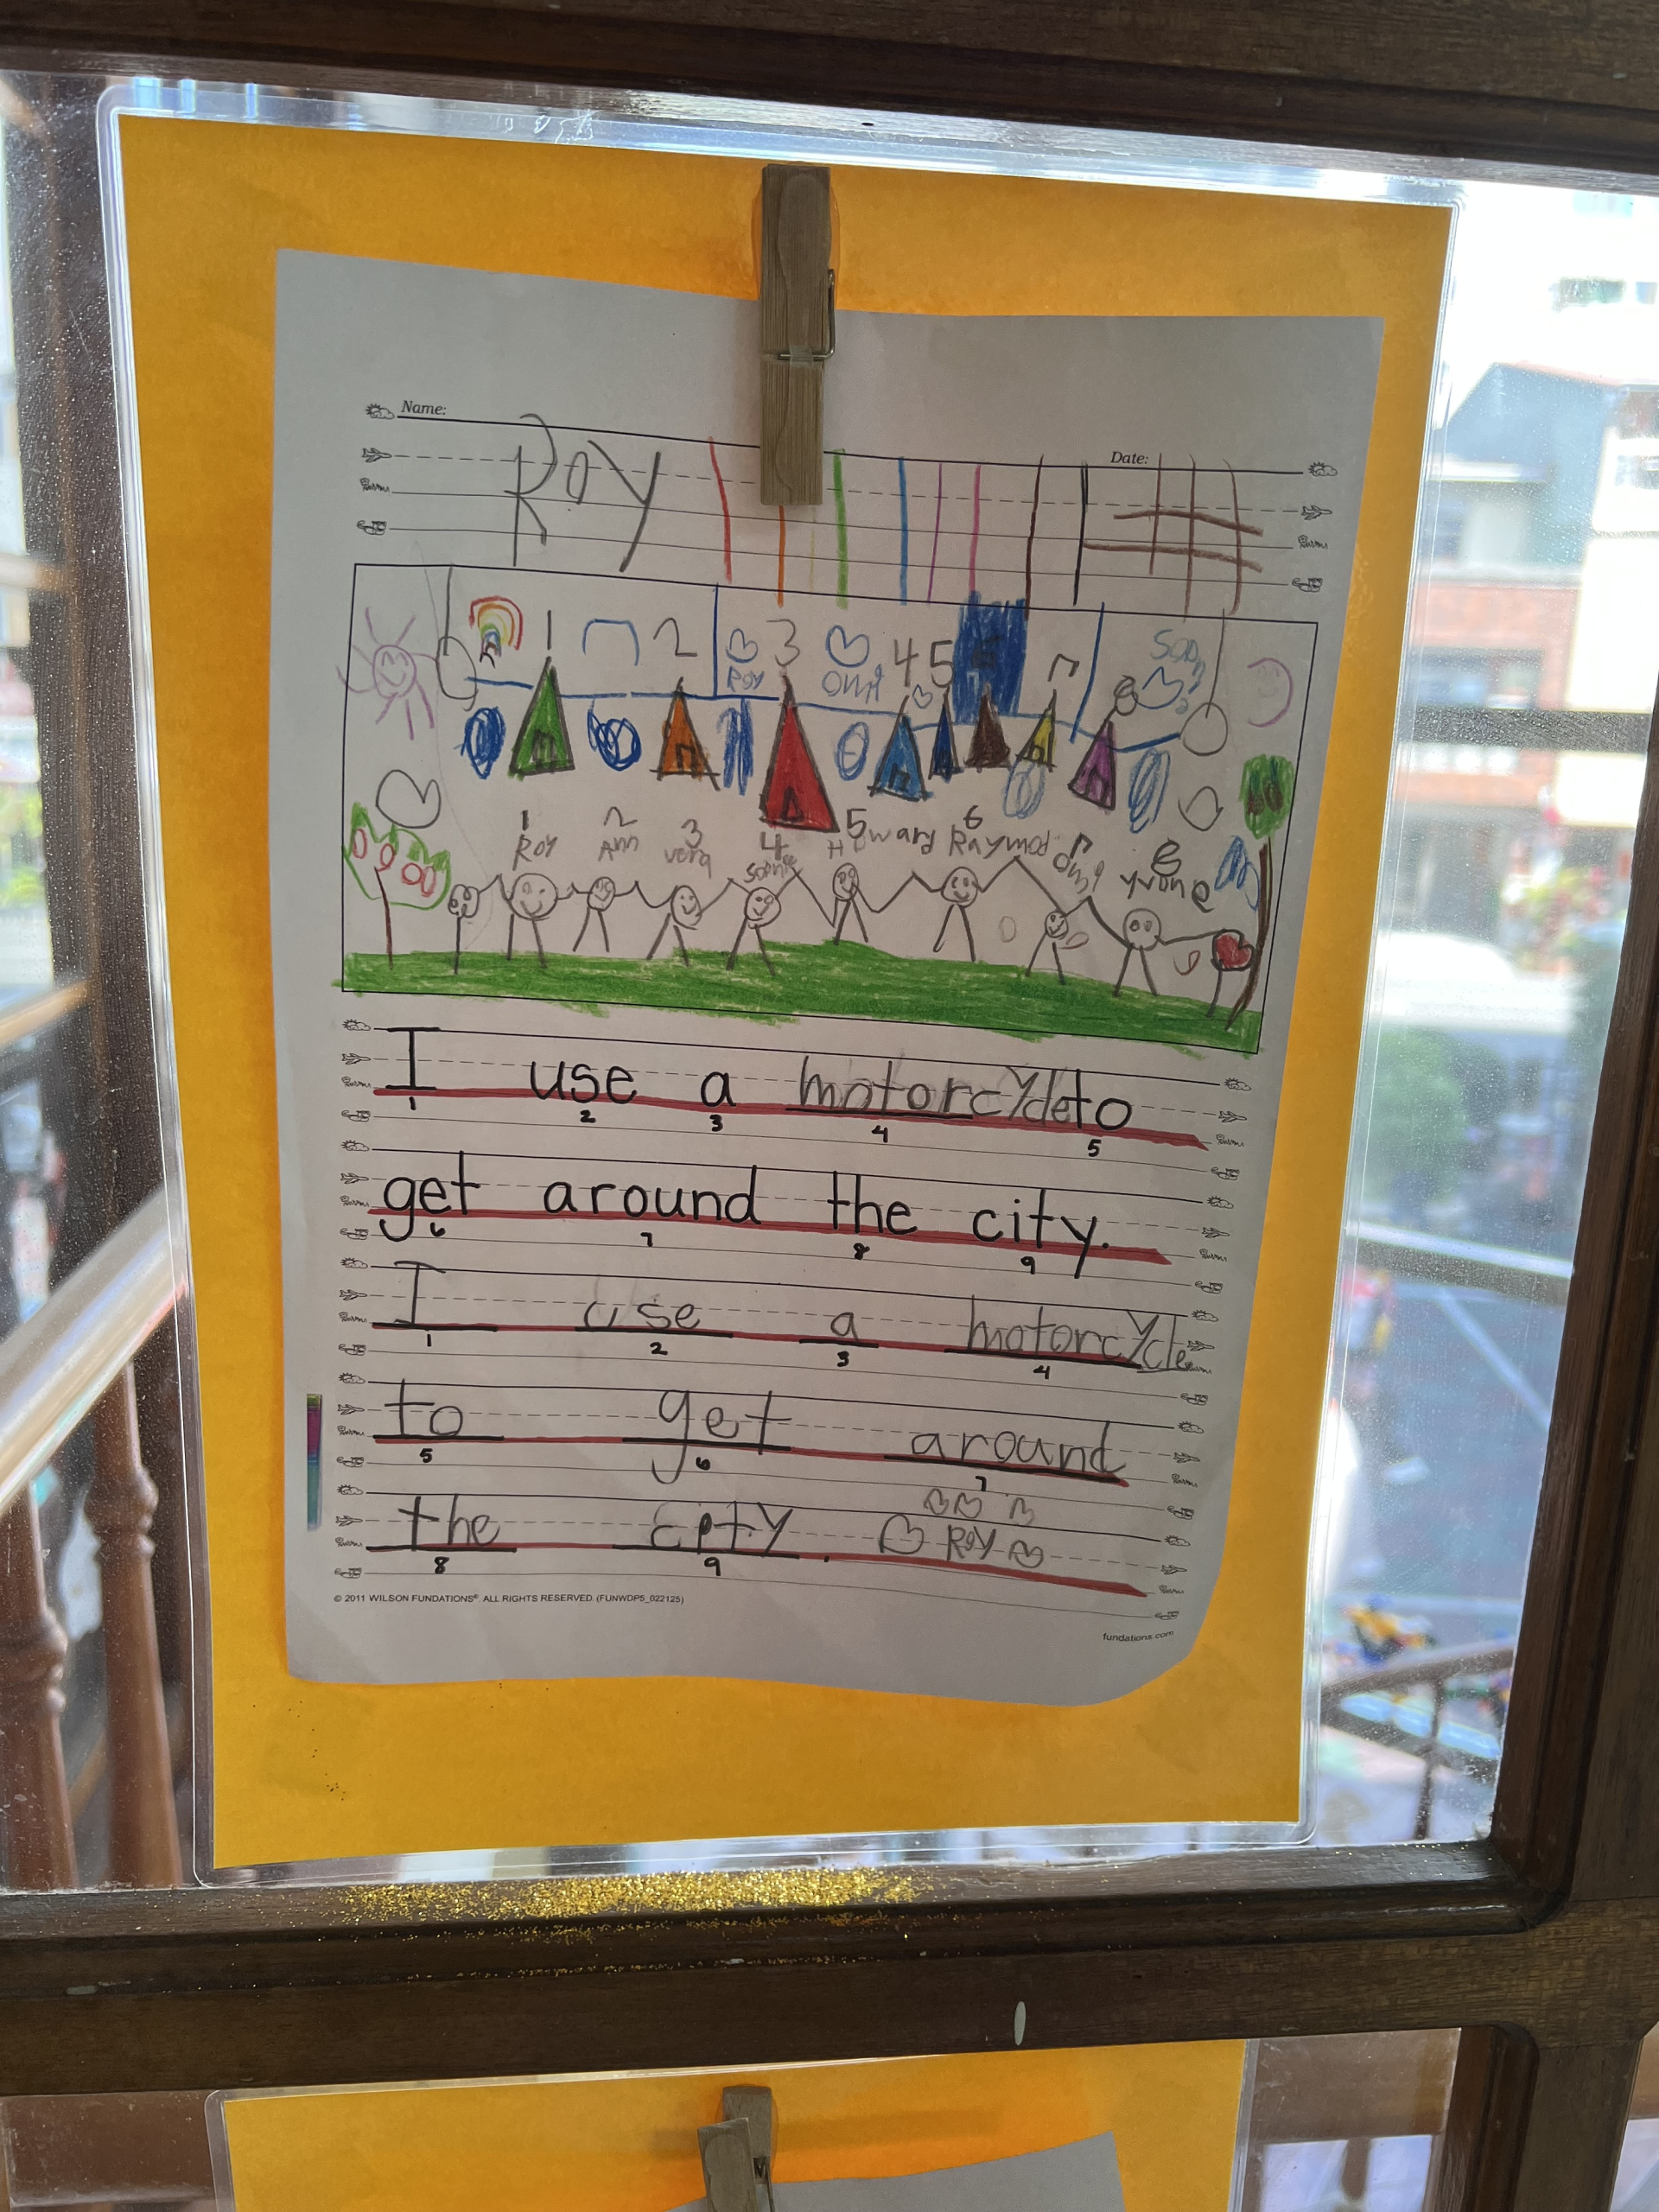 Name:
Date:
Roy
1 2 3 4 5
Roy omi
1 2 3 4 5 6
Roy Ann vera Howard Raymod omi yvone
I use a motorcycle to
1 2 3 4 5
get around the city.
6 7 8 9
I use a motorcycle
1 2 3 4
to get around
5 6 7
the city. Roy
8 9
© 2011 WILSON FUNDATIONS® ALL RIGHTS RESERVED. (FUNWDP5_022125)
fundations.com